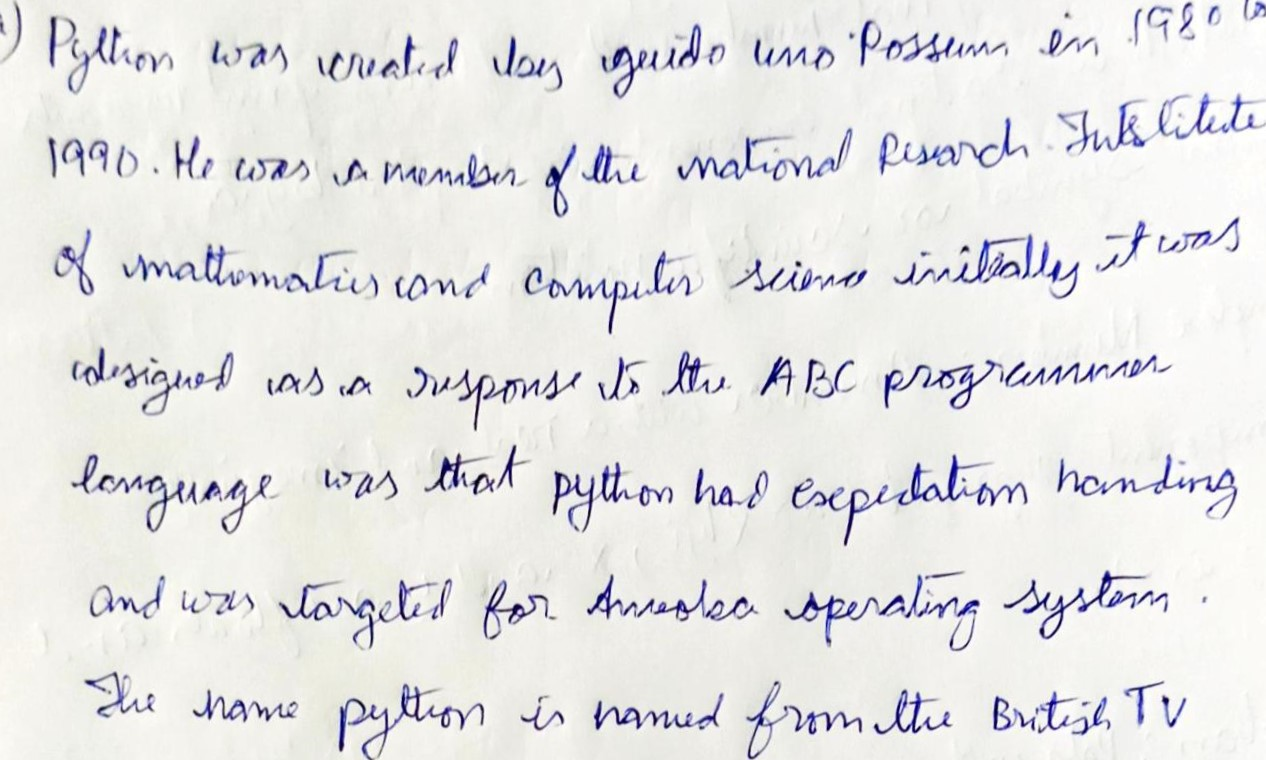 ) Python was created by guido uno Possum in 1980 to
1990. He was a member of the national Research Institute
of mathematics and computer science initially it was
designed as a response to the ABC programmer
language was that python had expectation handing
and was targeted for Amoeba operating system.
The name python is named from the British TV